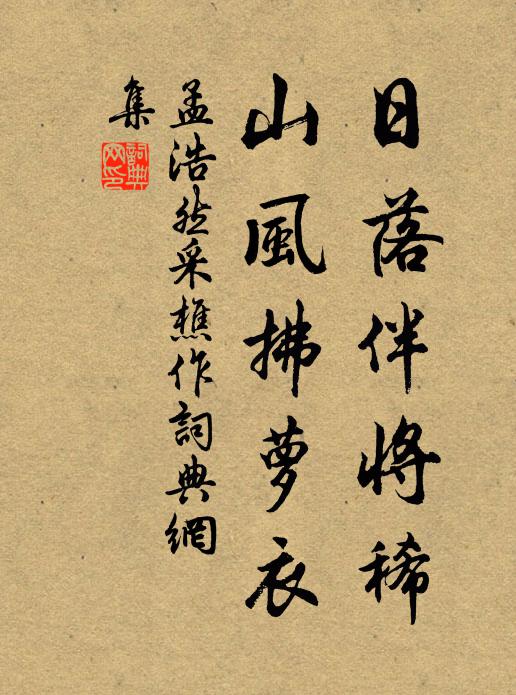 日落伴將稀
山風拂蘿衣
孟浩然采樵作詞典網
集
詞典網印